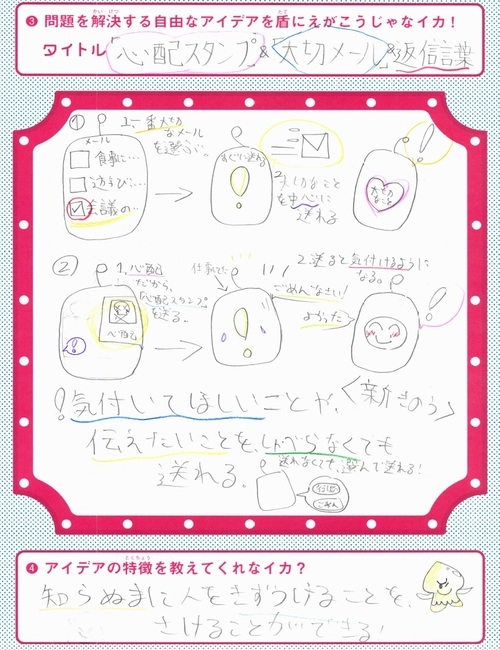 ❸ 問題を解決する自由なアイデアを盾にえがこうじゃなイカ！
タイトル「心配スタンプ」&「大切メール」&返信言葉
① 1、一番大切なメールを選ぶ。
メール
食事に…
遊びに…
会議の…
すぐに送れる
2、大切なことを中心に送れる
大切なこと
② 1、心配だから、「心配スタンプ」を送る。
心配
仕事でた
ごめんなさい！
よかった
2、送ると気付けるようになる。
！気付いてほしいことや、〈新きのう〉
伝えたいことを、しゃべらなくても
送れる。
送れなくても、選んで送れる！
ごめん
❹ アイデアの特徴を教えてくれなイカ？
知らぬまに人をきずつけることを、
さけることができる！